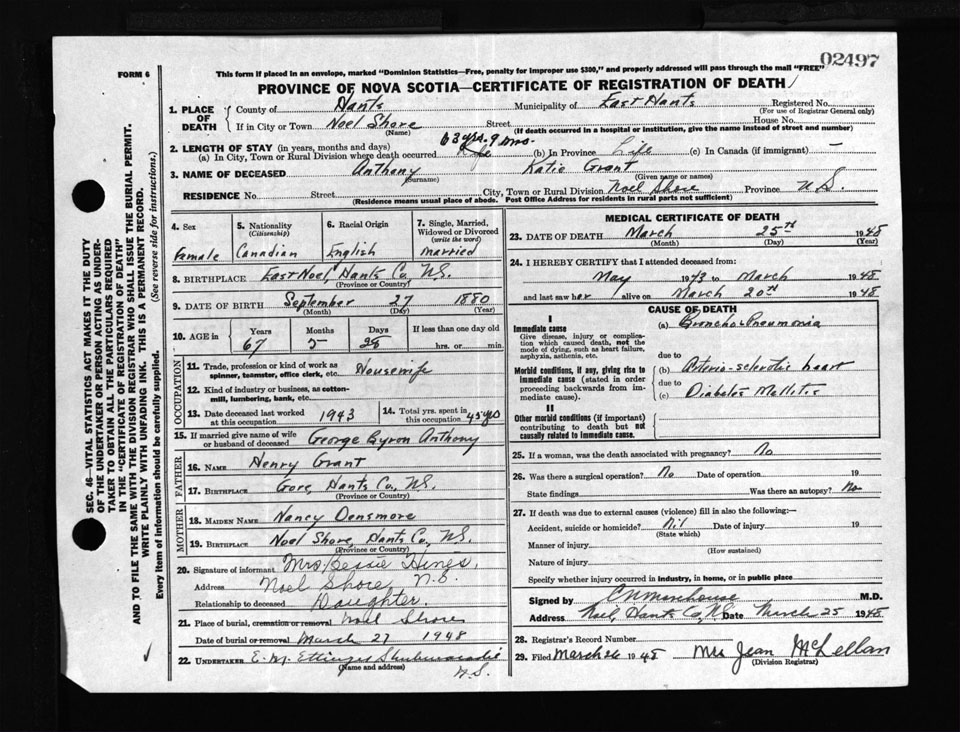 02497
FORM 6
This form if placed in an envelope, marked "Dominion Statistics—Free, penalty for improper use $300," and properly addressed will pass through the mail "FREE"
PROVINCE OF NOVA SCOTIA—CERTIFICATE OF REGISTRATION OF DEATH
1. PLACE OF DEATH { County of Hants Municipality of East Hants Registered No.
(For use of Registrar General only)
If in City or Town Noel Shore Street House No.
(Name) (If death occurred in a hospital or institution, give the name instead of street and number)
63 yrs. 9 mos.
2. LENGTH OF STAY (in years, months and days)
(a) In City, Town or Rural Division where death occurred (b) In Province Life (c) In Canada (if immigrant) —
3. NAME OF DECEASED Anthony Katie Grant
(Surname) (Given name or names)
RESIDENCE No. Street City, Town or Rural Division Noel Shore Province N.S.
(Residence means usual place of abode. Post Office Address for residents in rural parts not sufficient)
4. Sex 5. Nationality (Citizenship) 6. Racial Origin 7. Single, Married, Widowed or Divorced (write the word)
Female Canadian English Married
8. BIRTHPLACE East Noel, Hants Co, N.S.
(Province or Country)
9. DATE OF BIRTH September 27 1880
(Month) (Day) (Year)
10. AGE in Years Months Days If less than one day old
67 5 28 hrs. or min.
OCCUPATION
11. Trade, profession or kind of work as spinner, teamster, office clerk, etc. Housewife
12. Kind of industry or business, as cotton-mill, lumbering, bank, etc.
13. Date deceased last worked at this occupation 1943 14. Total yrs. spent in this occupation 45 yrs
15. If married give name of wife or husband of deceased George Byron Anthony
FATHER
16. NAME Henry Grant
17. BIRTHPLACE Gore, Hants Co, N.S.
(Province or Country)
MOTHER
18. MAIDEN NAME Nancy Densmore
19. BIRTHPLACE Noel Shore, Hants Co, N.S.
(Province or Country)
20. Signature of informant Mrs. Bessie Hines
Address Noel Shore, N.S.
Relationship to deceased Daughter.
21. Place of burial, cremation or removal Noel Shore
Date of burial or removal March 27 1948
22. UNDERTAKER E. M. Ettinger Shubenacadie
(Name and address) N.S.
MEDICAL CERTIFICATE OF DEATH
23. DATE OF DEATH March 25th 1948
(Month) (Day) (Year)
24. I HEREBY CERTIFY that I attended deceased from:
May 1943 to March 1948
and last saw her alive on March 20th 1948
CAUSE OF DEATH
I
Immediate cause (a) Broncho-Pneumonia
Give disease, injury or complication which caused death, not the mode of dying, such as heart failure, asphyxia, asthenia, etc.
due to
Morbid conditions, if any, giving rise to immediate cause (stated in order proceeding backwards from immediate cause).
(b) Arterio-sclerotic heart
due to
(c) Diabetes Mellitis
II
Other morbid conditions (if important) contributing to death but not causally related to immediate cause.
25. If a woman, was the death associated with pregnancy? No
26. Was there a surgical operation? No Date of operation 19
State findings Was there an autopsy? No
27. If death was due to external causes (violence) fill in also the following:—
Accident, suicide or homicide? Nil Date of injury 19
(State which)
Manner of injury
(How sustained)
Nature of injury
Specify whether injury occurred in industry, in home, or in public place
Signed by M.D.
Address Noel, Hants Co, N.S. Date March 25 1948
28. Registrar's Record Number
29. Filed March 26 1948 Mrs Jean McLellan
(Division Registrar)
SEC. 46—VITAL STATISTICS ACT MAKES IT THE DUTY OF THE UNDERTAKER OR PERSON ACTING AS UNDERTAKER TO OBTAIN ALL THE PARTICULARS REQUIRED IN THE "CERTIFICATE OF REGISTRATION OF DEATH" AND TO FILE THE SAME WITH THE DIVISION REGISTRAR WHO SHALL ISSUE THE BURIAL PERMIT.
WRITE PLAINLY WITH UNFADING INK. THIS IS A PERMANENT RECORD.
Every item of information should be carefully supplied. (See reverse side for instructions.)